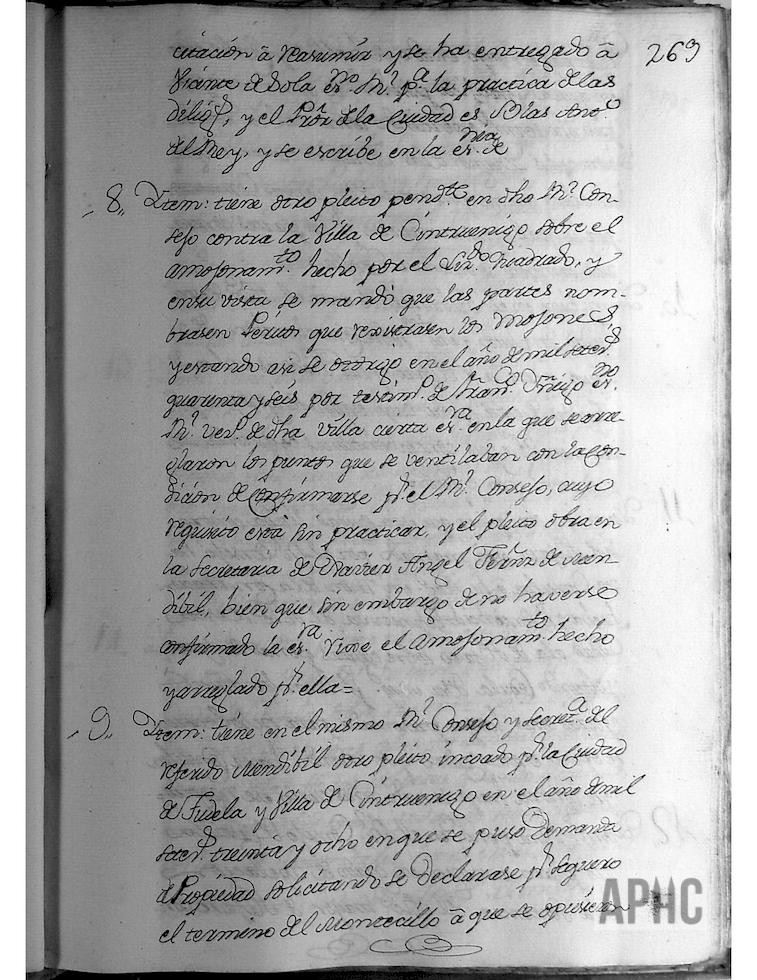 269
citación â reasumir y se ha entregado â
Vicente de Sola es.no R.l p.a la practica de las
dilig.s, y el Pr.or de la Ciudad es Blas Ant.o
del Rey, y se escribe en la es.nia de
8,, Ytem: tiene otro pleito pend.te en dho R.l Con-
sejo contra la Villa de Cintruenigo sobre el
amojonam.to hecho por el Quadrado, y
en su vista se mandó que las partes nom-
brasen Peritos que rexistrasen los Mojones
y estando asi se otorgo en el año de mil setez.s
quarenta y seis por testim.o de Fran.co Yñigo es.no
R.l vez.o de dha villa cierta es.ra en la que se arre-
glaron los puntos que se ventilaban con la con-
dicion de Confirmarse p.r el R.l Consejo, cuyo
requisito està sin practicar, y el pleito obra en
la Secretaria de Xavier Angel Fern̄z de Men-
dibil, bien que sin embargo de no haverse
confirmado la es.ra vive el amojonam.to hecho
y arreglado p.r ella=
9,, Ytem: tiene en el mismo R.l Consejo y Secret.a del
referido Mendibil otro pleito incoado p.r la Ciudad
de Tudela y Villa de Cintruenigo en el año de mil
setez.s treinta y ocho en que se puso Demanda
de Propiedad solicitando se declarase p.r seguero
el termino del Montecillo â que se opusieron
APHC